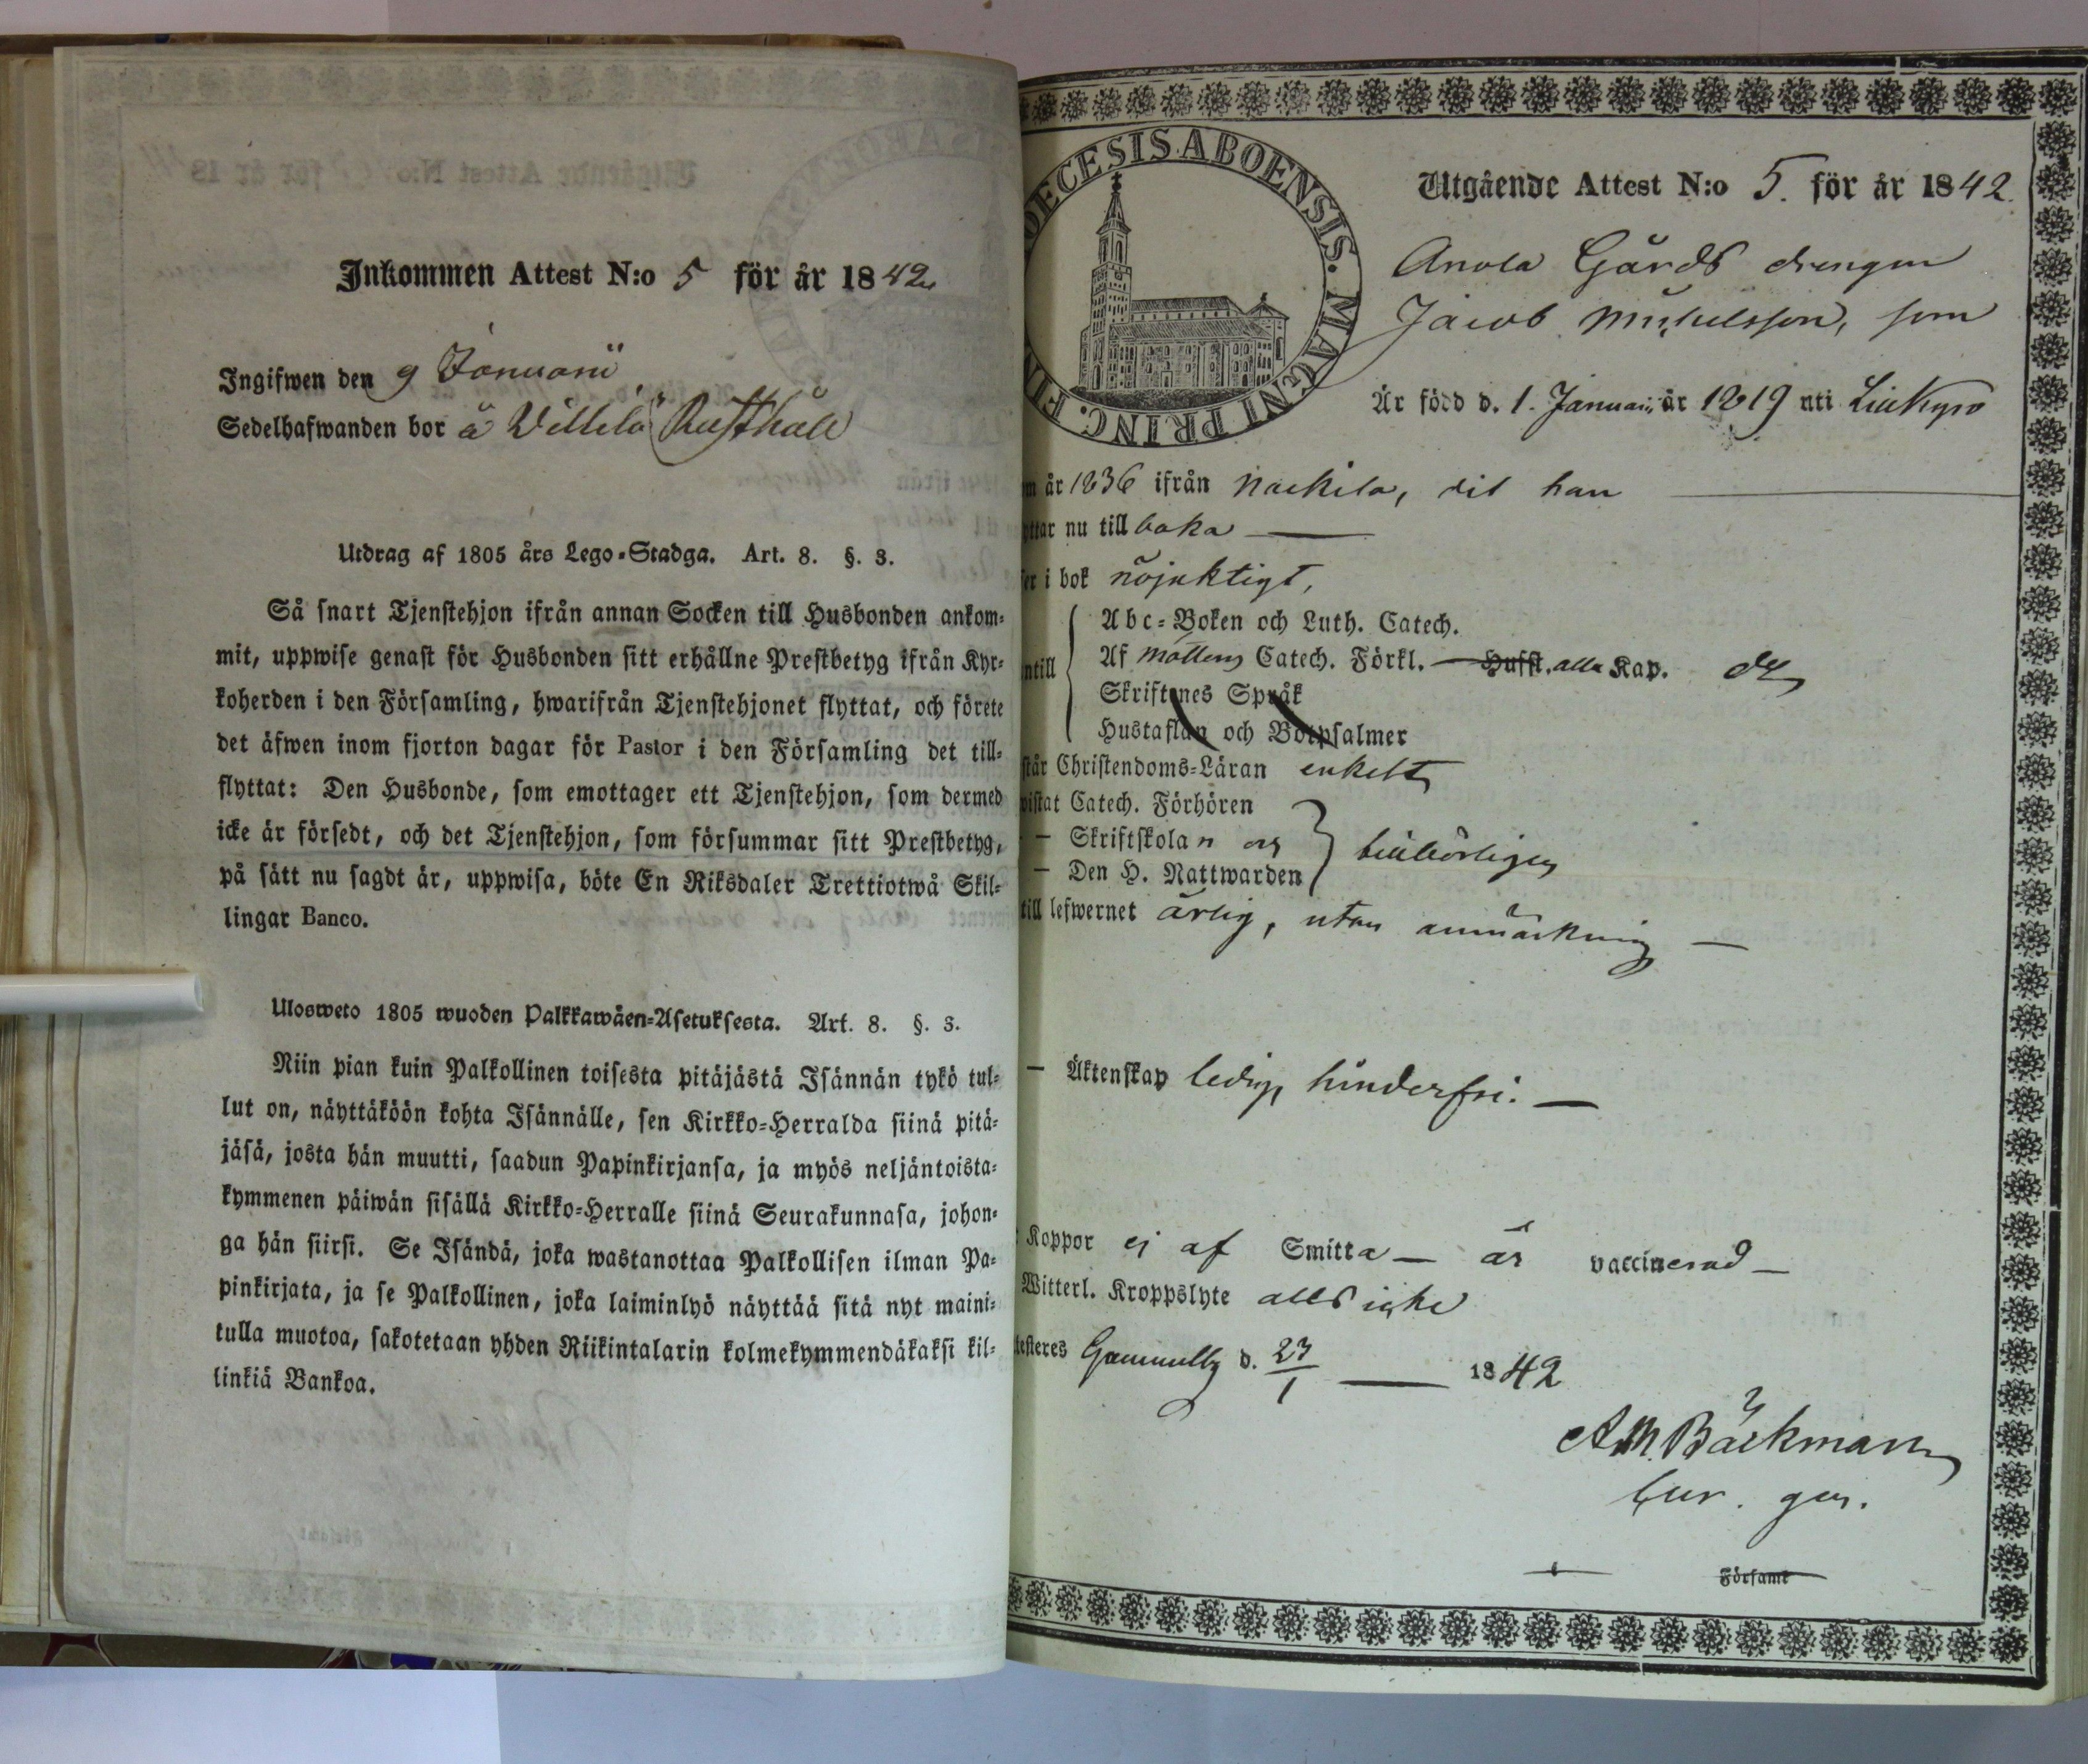 Inkommen Attest N:o 5 för år 1842
Ingifwen den 9 Januarii
Sedelhafwanden bor å Villilä Rusthåll
Utdrag af 1805 års Lego-Stadga. Art. 8. §. 3.
Så snart Tjenstehjon ifrån annan Socken till Husbonden ankom-
mit, uppwise genast för Husbonden sitt erhållne Prestbetyg ifrån Kyr-
koherden i den Församling, hwarifrån Tjenstehjonet flyttat, och förete
det äfwen inom fjorton dagar för Pastor i den Församling det till-
flyttat: Den Husbonde, som emottager ett Tjenstehjon, som dermed
icke är försedt, och det Tjenstehjon, som försummar sitt Prestbetyg,
på sätt nu sagdt är, uppwisa, böte En Riksdaler Trettiotwå Skil-
lingar Banco.
Ulosweto 1805 wuoden Palkkawäen-Asetuksesta. Art. 8. §. 3.
Niin pian kuin Palkollinen toisesta pitäjästä Isännän tykö tul-
lut on, näyttäköön kohta Isännälle, sen Kirkko-Herralda siinä pitä-
jäsä, josta hän muutti, saadun Papinkirjansa, ja myös neljäntoista-
kymmenen päiwän sisällä Kirkko-Herralle siinä Seurakunnasa, johon-
ga hän siirsi. Se Isändä, joka wastanottaa Palkollisen ilman Pa-
pinkirjata, ja se Palkollinen, joka laiminlyö näyttää sitä nyt maini-
tulla muotoa, sakotetaan yhden Riikintalarin kolmekymmendäkaksi kil-
linkiä Bankoa.
DECESIS ABOENSIS. MAGNI PRINC. FIN
Utgående Attest N:o 5. för år 1842.
Anola Gårds drengen
Jacob Michelsson, som
Är född d. 1. Januarii år 1819 uti
m år 1836 ifrån Nackila, dit han
yttar nu tillbaka
ser i bok nöjaktigt,
ntill
Abc-Boken och Luth. Catech.
Af Möllers Catech. Förkl. Hufst. alla Kap.
Skriftenes Språk
Hustaflan och Botpsalmer
står Christendoms-Läran enkelt
wistat Catech. Förhören
— Skriftskolan och
— Den H. Nattwarden
behörigen
till lefwernet ärlig, utan anmärkning
— Äktenskap ledig, hinderfri.
Koppor ej af Smitta är vaccinerad
Witterl. Kroppslyte alls icke
testeres Gammelby d. 23/1 1842
A.M. Bäckman
Församl